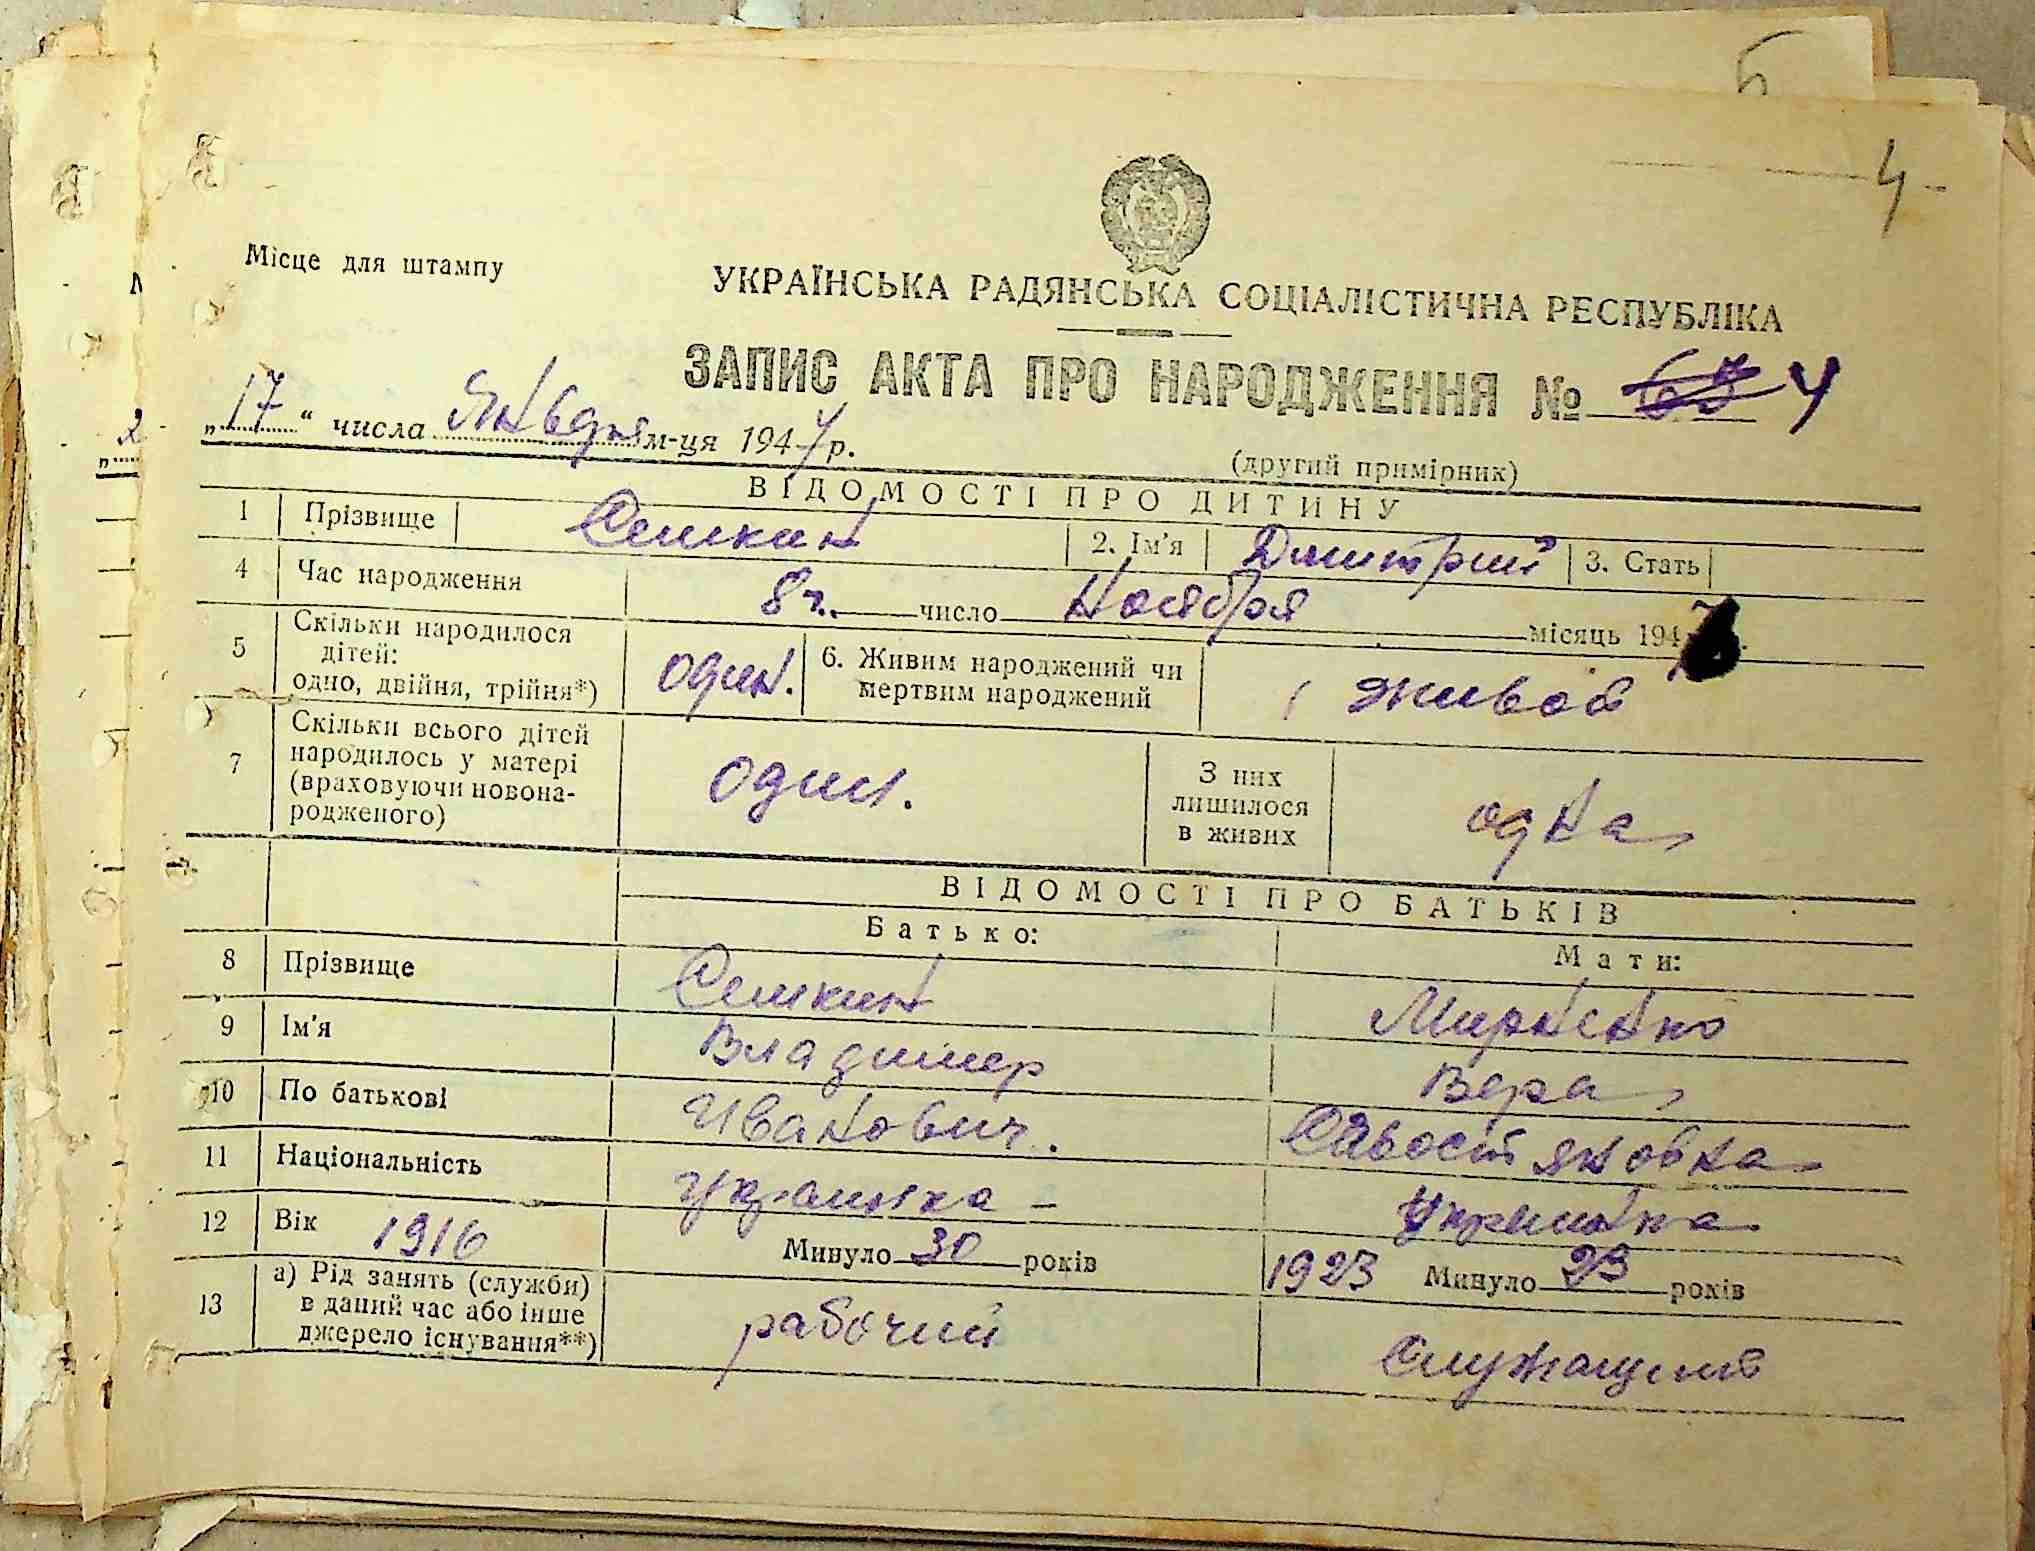 5
4
Місце для штампу
УКРАЇНСЬКА РАДЯНСЬКА СОЦІАЛІСТИЧНА РЕСПУБЛІКА
ЗАПИС АКТА ПРО НАРОДЖЕННЯ № 4
„17“ числа Января м-ця 1947 р.
(другий примірник)
ВІДОМОСТІ ПРО ДИТИНУ
1 Прізвище Семкин 2. Ім'я Дмитрий 3. Стать
4 Час народження 8г. число Ноября місяць 194
5 Скільки народилося дітей: одно, двійня, трійня*) один. 6. Живим народжений чи мертвим народжений живой
7 Скільки всього дітей народилось у матері (враховуючи новонародженого) один. З них лишилося в живих одна
ВІДОМОСТІ ПРО БАТЬКІВ
Батько: Мати:
8 Прізвище Семкин Мирненко
9 Ім'я Владимер Вера
10 По батькові Иванович. Савостяновна
11 Національність Украинка - Украинка
12 Вік 1916 Минуло 30 років 1923 Минуло 23 років
13 а) Рід занять (служби) в даний час або інше джерело існування**) рабочий Служащий